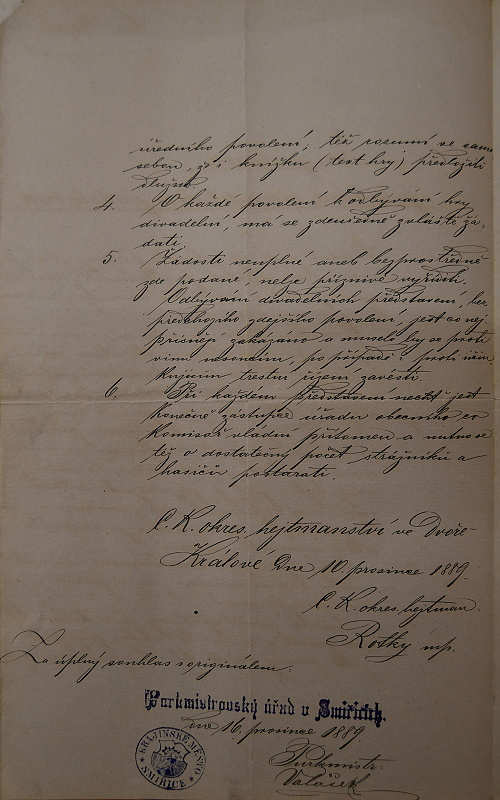 úředního povolení, též rozumí se samo
sebou, že i knížku (text hry) předložiti
dlužno.
4. O každé povolení k odbývání hry
divadelní, má se zdeúředně zvláště žá-
dati.
5. Žádosti neúplné aneb bezprostředně
zde podané, nelze příznivě vyříditi.
Odbývání divadelních představení, bez
předchozího zdejšího povolení, jest co nej
přísněji zakázáno a muselo by se proti
vinným osobám, po případě i proti účin
kujícím trestní řízení zavésti.
6. Při každém představení nechť jest
konečně zástupce úřadu obecního co
komisař vládní přítomen a nutno se
též o dostatečný počet strážníků a
hasičů postarati.
C. K. okres. hejtmanství ve Dvoře
Králové dne 10. prosince 1889.
C. K. okres. hejtman.
Rotky mp.
Za úplný souhlas s originálem:
Purkmistrovský úřad v Smiřicích,
dne 16. prosince 1889.
Purkmistr.
Valášek
KRAJINSKÉ MĚSTO SMIŘICE